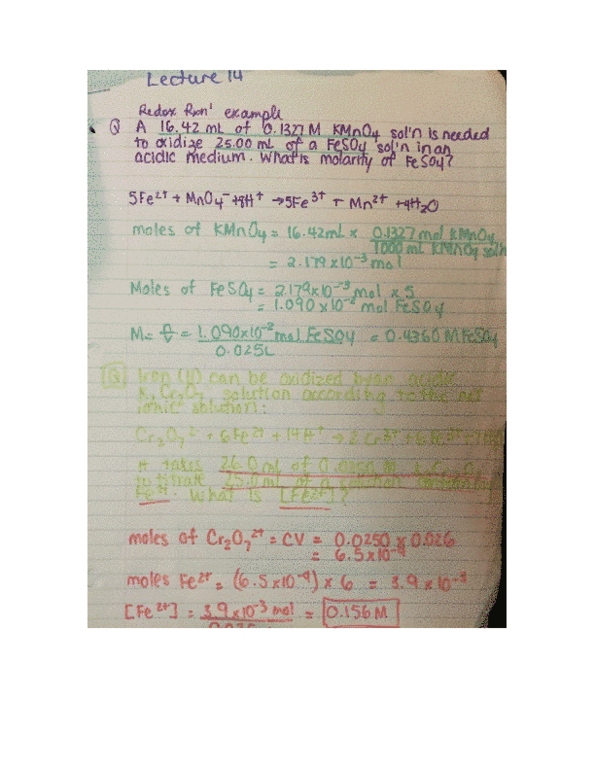 Lecture 14
Redox Rxn' example
Q A 16.42 mL of 0.1327 M KMnO4 sol'n is needed
to oxidize 25.00 mL of a FeSO4 sol'n in an
acidic medium. What is molarity of FeSO4?
5Fe²⁺ + MnO4⁻ +8H⁺ →5Fe³⁺ + Mn²⁺ +4H2O
moles of KMnO4 = 16.42mL × 0.1327 mol KMnO4
1000 mL KMnO4 sol'n
= 2.179 ×10⁻³ mol
Moles of FeSO4 = 2.179×10⁻³ mol × 5
= 1.090 ×10⁻² mol FeSO4
M = n/V = 1.090×10⁻² mol FeSO4 = 0.4360 M FeSO4
0.025L
Q Iron (II) can be oxidized by an acidic
K2Cr2O7 solution according to the net
ionic solution:
Cr2O7²⁻ + 6Fe²⁺ + 14H⁺ → 2 Cr³⁺ + 6Fe³⁺ +
It takes 26.0 mL of 0.0250 M
to titrate 25.0 mL of a solution
Fe²⁺. What is [Fe²⁺]?
moles of Cr2O7²⁺ = CV = 0.0250 × 0.026
= 6.5×10⁻⁴
moles Fe²⁺ = (6.5×10⁻⁴) × 6 = 3.9 ×10⁻³
[Fe²⁺] = 3.9×10⁻³ mol = 0.156 M